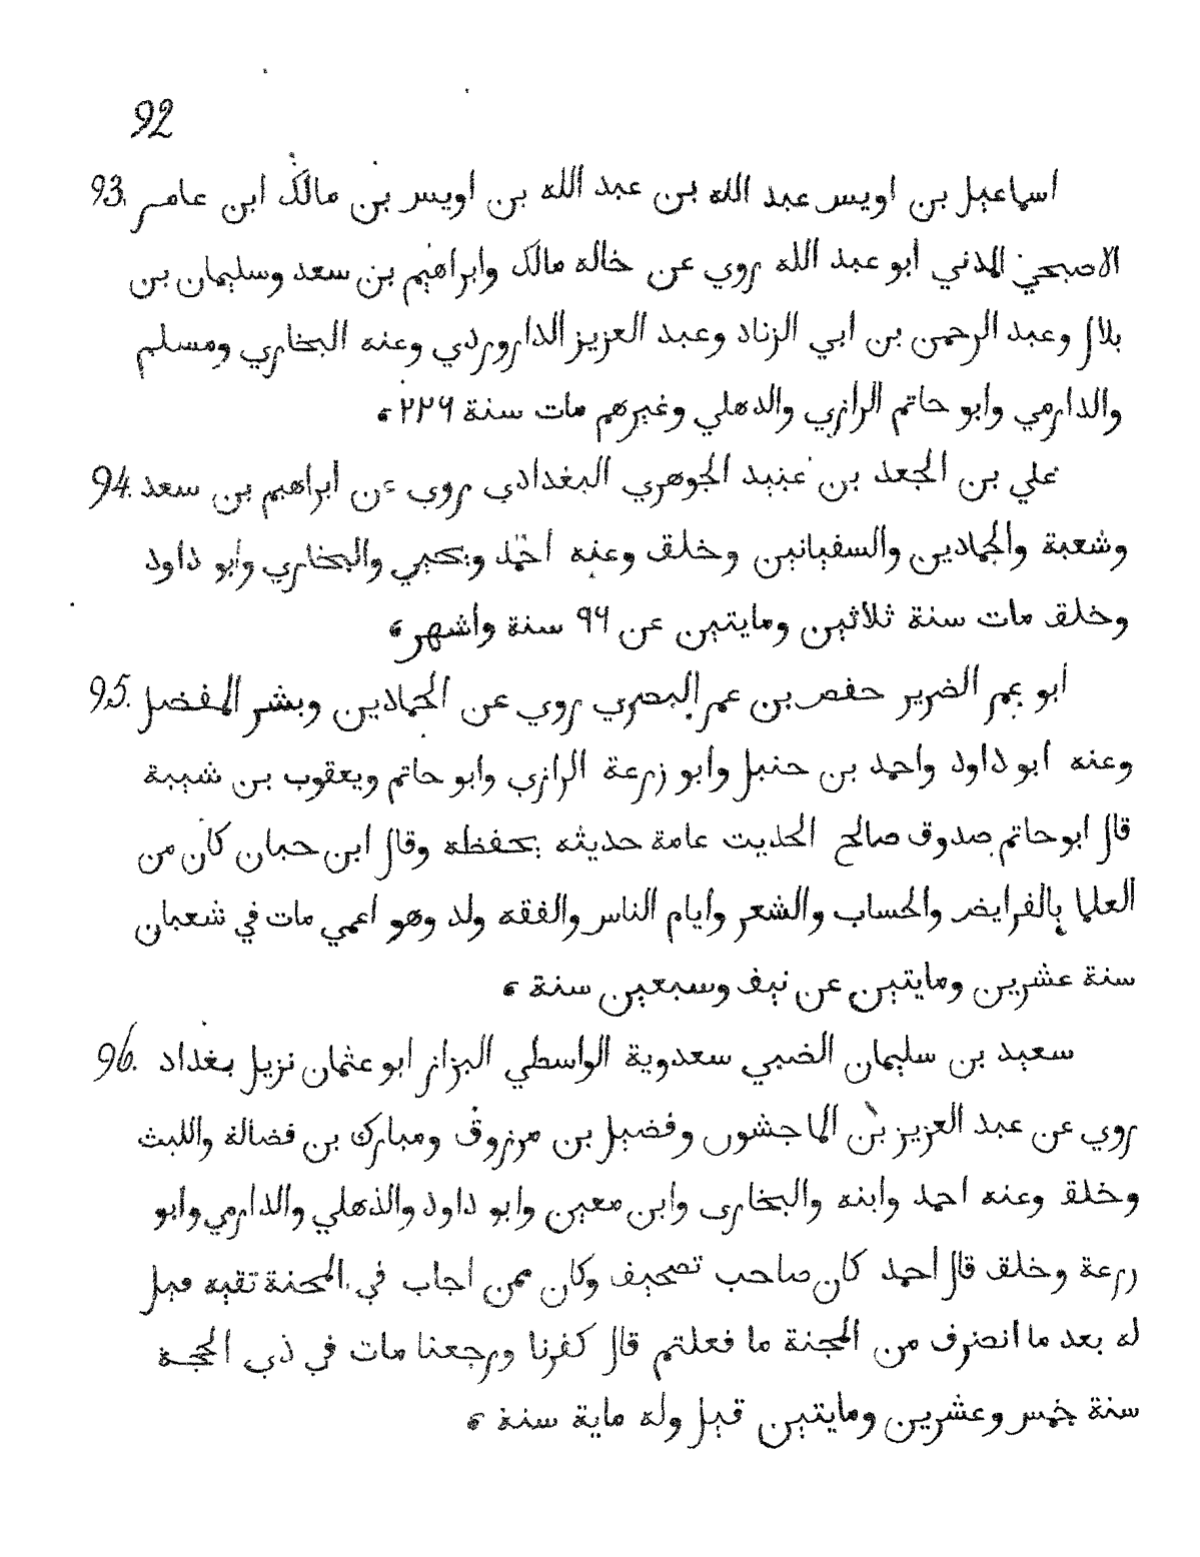 92
93. اسماعيل بن اويس عبد الله بن عبد الله بن اويس بن مالك ابن عامر
الاصبحي المدني ابو عبد الله روي عن خاله مالك وابراهيم بن سعد وسليمان بن
بلال وعبد الرحمن بن ابي الزناد وعبد العزيز الداروردي وعنه البخاري ومسلم
والدارمي وابو حاتم الرازي والدهلي وغيرهم مات سنة ٢٢٦ ،
94. علي بن الجعد بن عبيد الجوهري البغدادي روي عن ابراهيم بن سعد
وشعبة والحمادين والسفيانين وخلق وعنه احمد ويحيي والبخاري وابو داود
وخلق مات سنة ثلاثين ومايتين عن ٩٦ سنة واشهر ،
95. ابو عمر الضرير حفص بن عمر البصري روي عن الحمادين وبشر المفضل
وعنه ابو داود واحمد بن حنبل وابو زرعة الرازي وابو حاتم ويعقوب بن شيبة
قال ابو حاتم صدوق صالح الحديت عامة حديثه يحفظه وقال ابن حبان كان من
العلما بالفرايض والحساب والشعر وايام الناس والفقه ولد وهو اعمي مات في شعبان
سنة عشرين ومايتين عن نيف وسبعين سنة ،
96. سعيد بن سليمان الضبي سعدوية الواسطي البزاز ابو عثمان نزيل بغداد
روي عن عبد العزيز بن الماجشون وفضيل بن مرزوق ومبارك بن فضالة والليث
وخلق وعنه احمد وابنه والبخارى وابن معين وابو داود والذهلي والدارمي وابو
زرعة وخلق قال احمد كان صاحب تصحيف وكان ممن اجاب في المحنة تقيه فيل
له بعد ما انصرف من المحنة ما فعلتم قال كفرنا ورجعنا مات في ذي الحجة
سنة خمس وعشرين ومايتين قيل وله ماية سنة ،